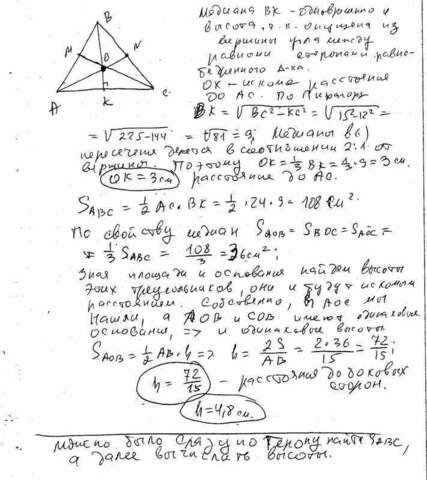 B
M
N
O
A
K
C
Медиана BK - одновременно и
высота, т.к. опущена из
вершины угла между
равными сторонами равно-
бедренного Δ-ка.
OK - искомое расстояние
до AC. По Пифагору
BK = √BC²-KC² = √15²-12² =
= √225-144 = √81 = 9; Медианы в (·)
пересечения делятся в соотношении 2:1 от
вершины. Поэтому OK = 1/3 BK = 1/3 · 9 = 3 см.
OK = 3 см расстояние до AC.
S ABC = 1/2 AC · BK = 1/2 · 24 · 9 = 108 см².
По свойству медиан S AOB = S BOC = S AOC =
= 1/3 S ABC = 108/3 = 36 см²;
Зная площади и основания найдем высоты
этих треугольников, они и будут искомым
расстоянием. Собственно, h AOC мы
нашли, а AOB и COB имеют одинаковые
основания, => и одинаковые высоты
S AOB = 1/2 AB · h => h = 2S/AB = 2·36/15 = 72/15;
h = 72/15 - расстояния до боковых
сторон.
h = 4,8 см.
Можно было сразу по Герону найти S ABC,
а далее вычислять высоты.